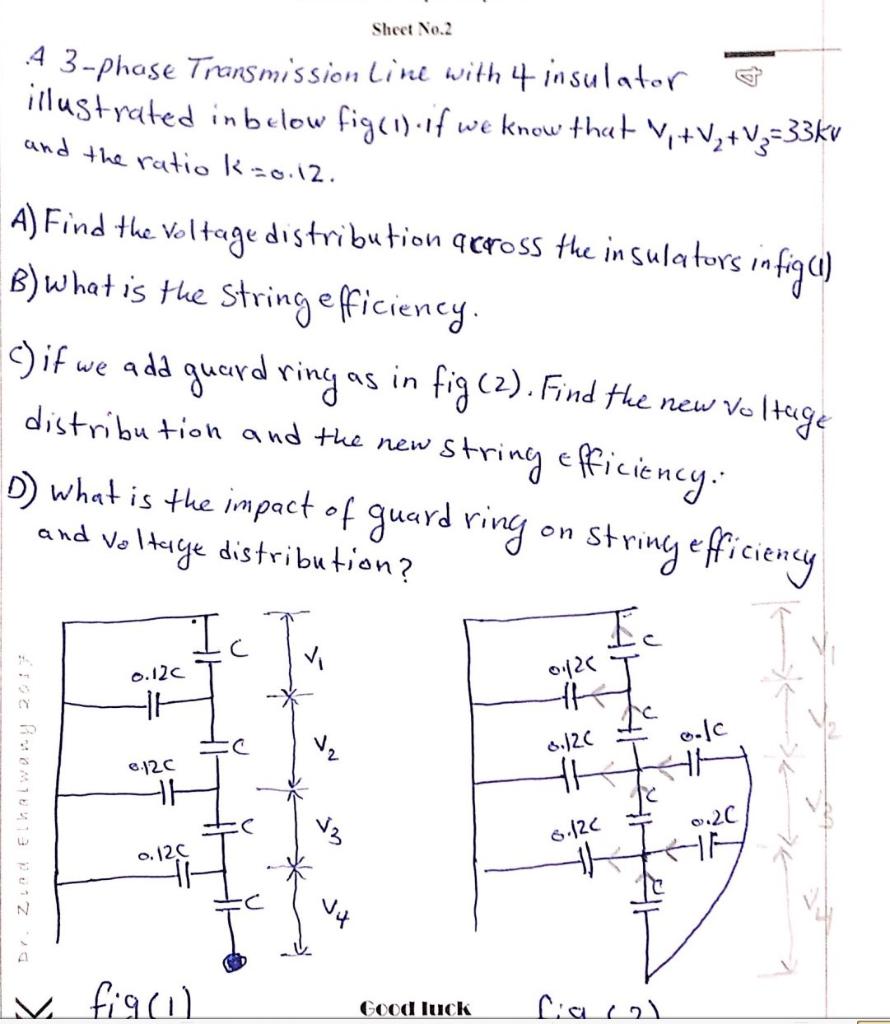 Sheet No.2
A 3-phase Transmission Line with 4 insulator
illustrated in below fig(1). if we know that V1+V2+V3=33kv
and the ratio k=0.12.
A) Find the Voltage distribution across the insulators in fig(1)
B) what is the string efficiency.
C) if we add guard ring as in fig (2). Find the new voltage
distribution and the new string efficiency.
D) what is the impact of guard ring on string efficiency
and voltage distribution?
C
V1
0.12C
C
V2
0.12C
C
V3
0.12C
C
V4
fig(1)
C
V1
0.12C
C
V2
0.12C
0.1C
C
V3
0.12C
0.2C
C
V4
fig(2)
Dr. Ziad Elhalwany 2017
Good luck